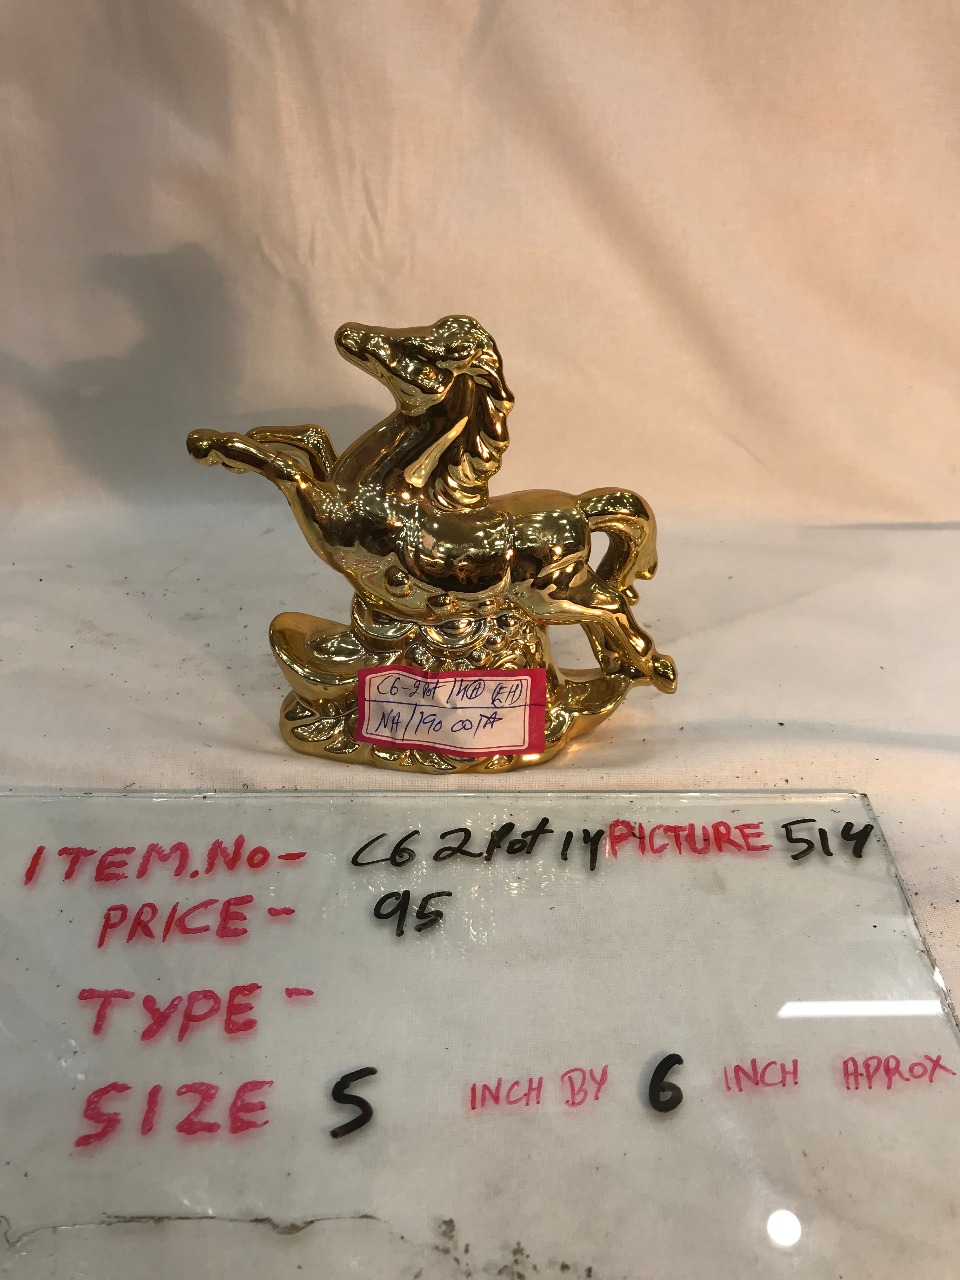 C6-2Pot 14
NA/190 00/A
ITEM.No- C6 2Pot 14 PICTURE 514
PRICE- 95
TYPE-
SIZE 5 INCH BY 6 INCH APROX